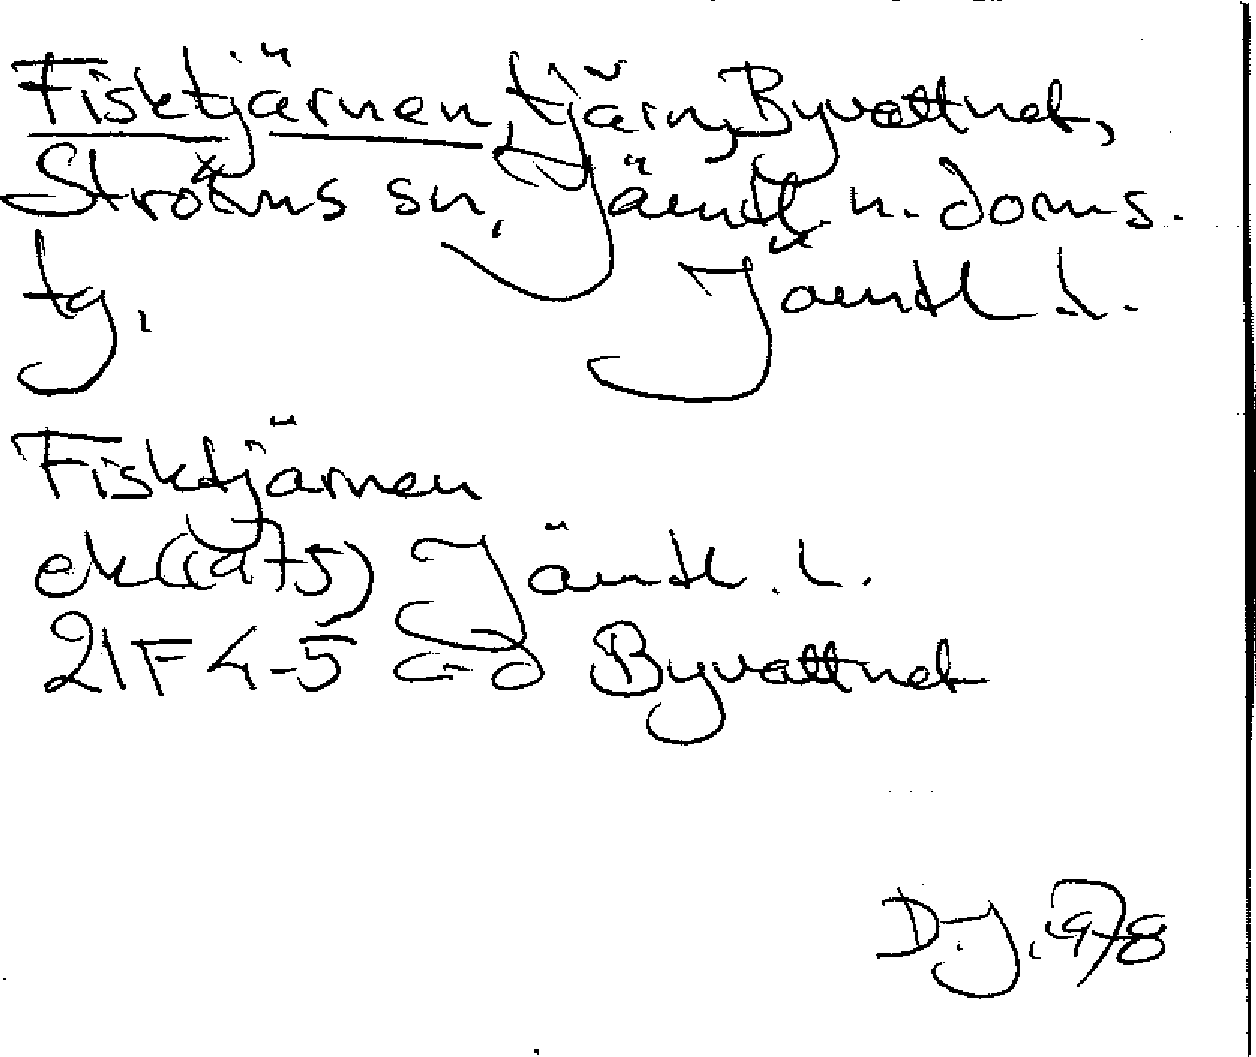 Fisktjärnen, tjärn, Byvattnet,
Ströms sn, Jämtl. n. doms.
tg. Jämtl. l.
Fisktjärnen
ek (1975) Jämtl. l.
21F 4-5 c-d Byvattnet
D.J. 1978